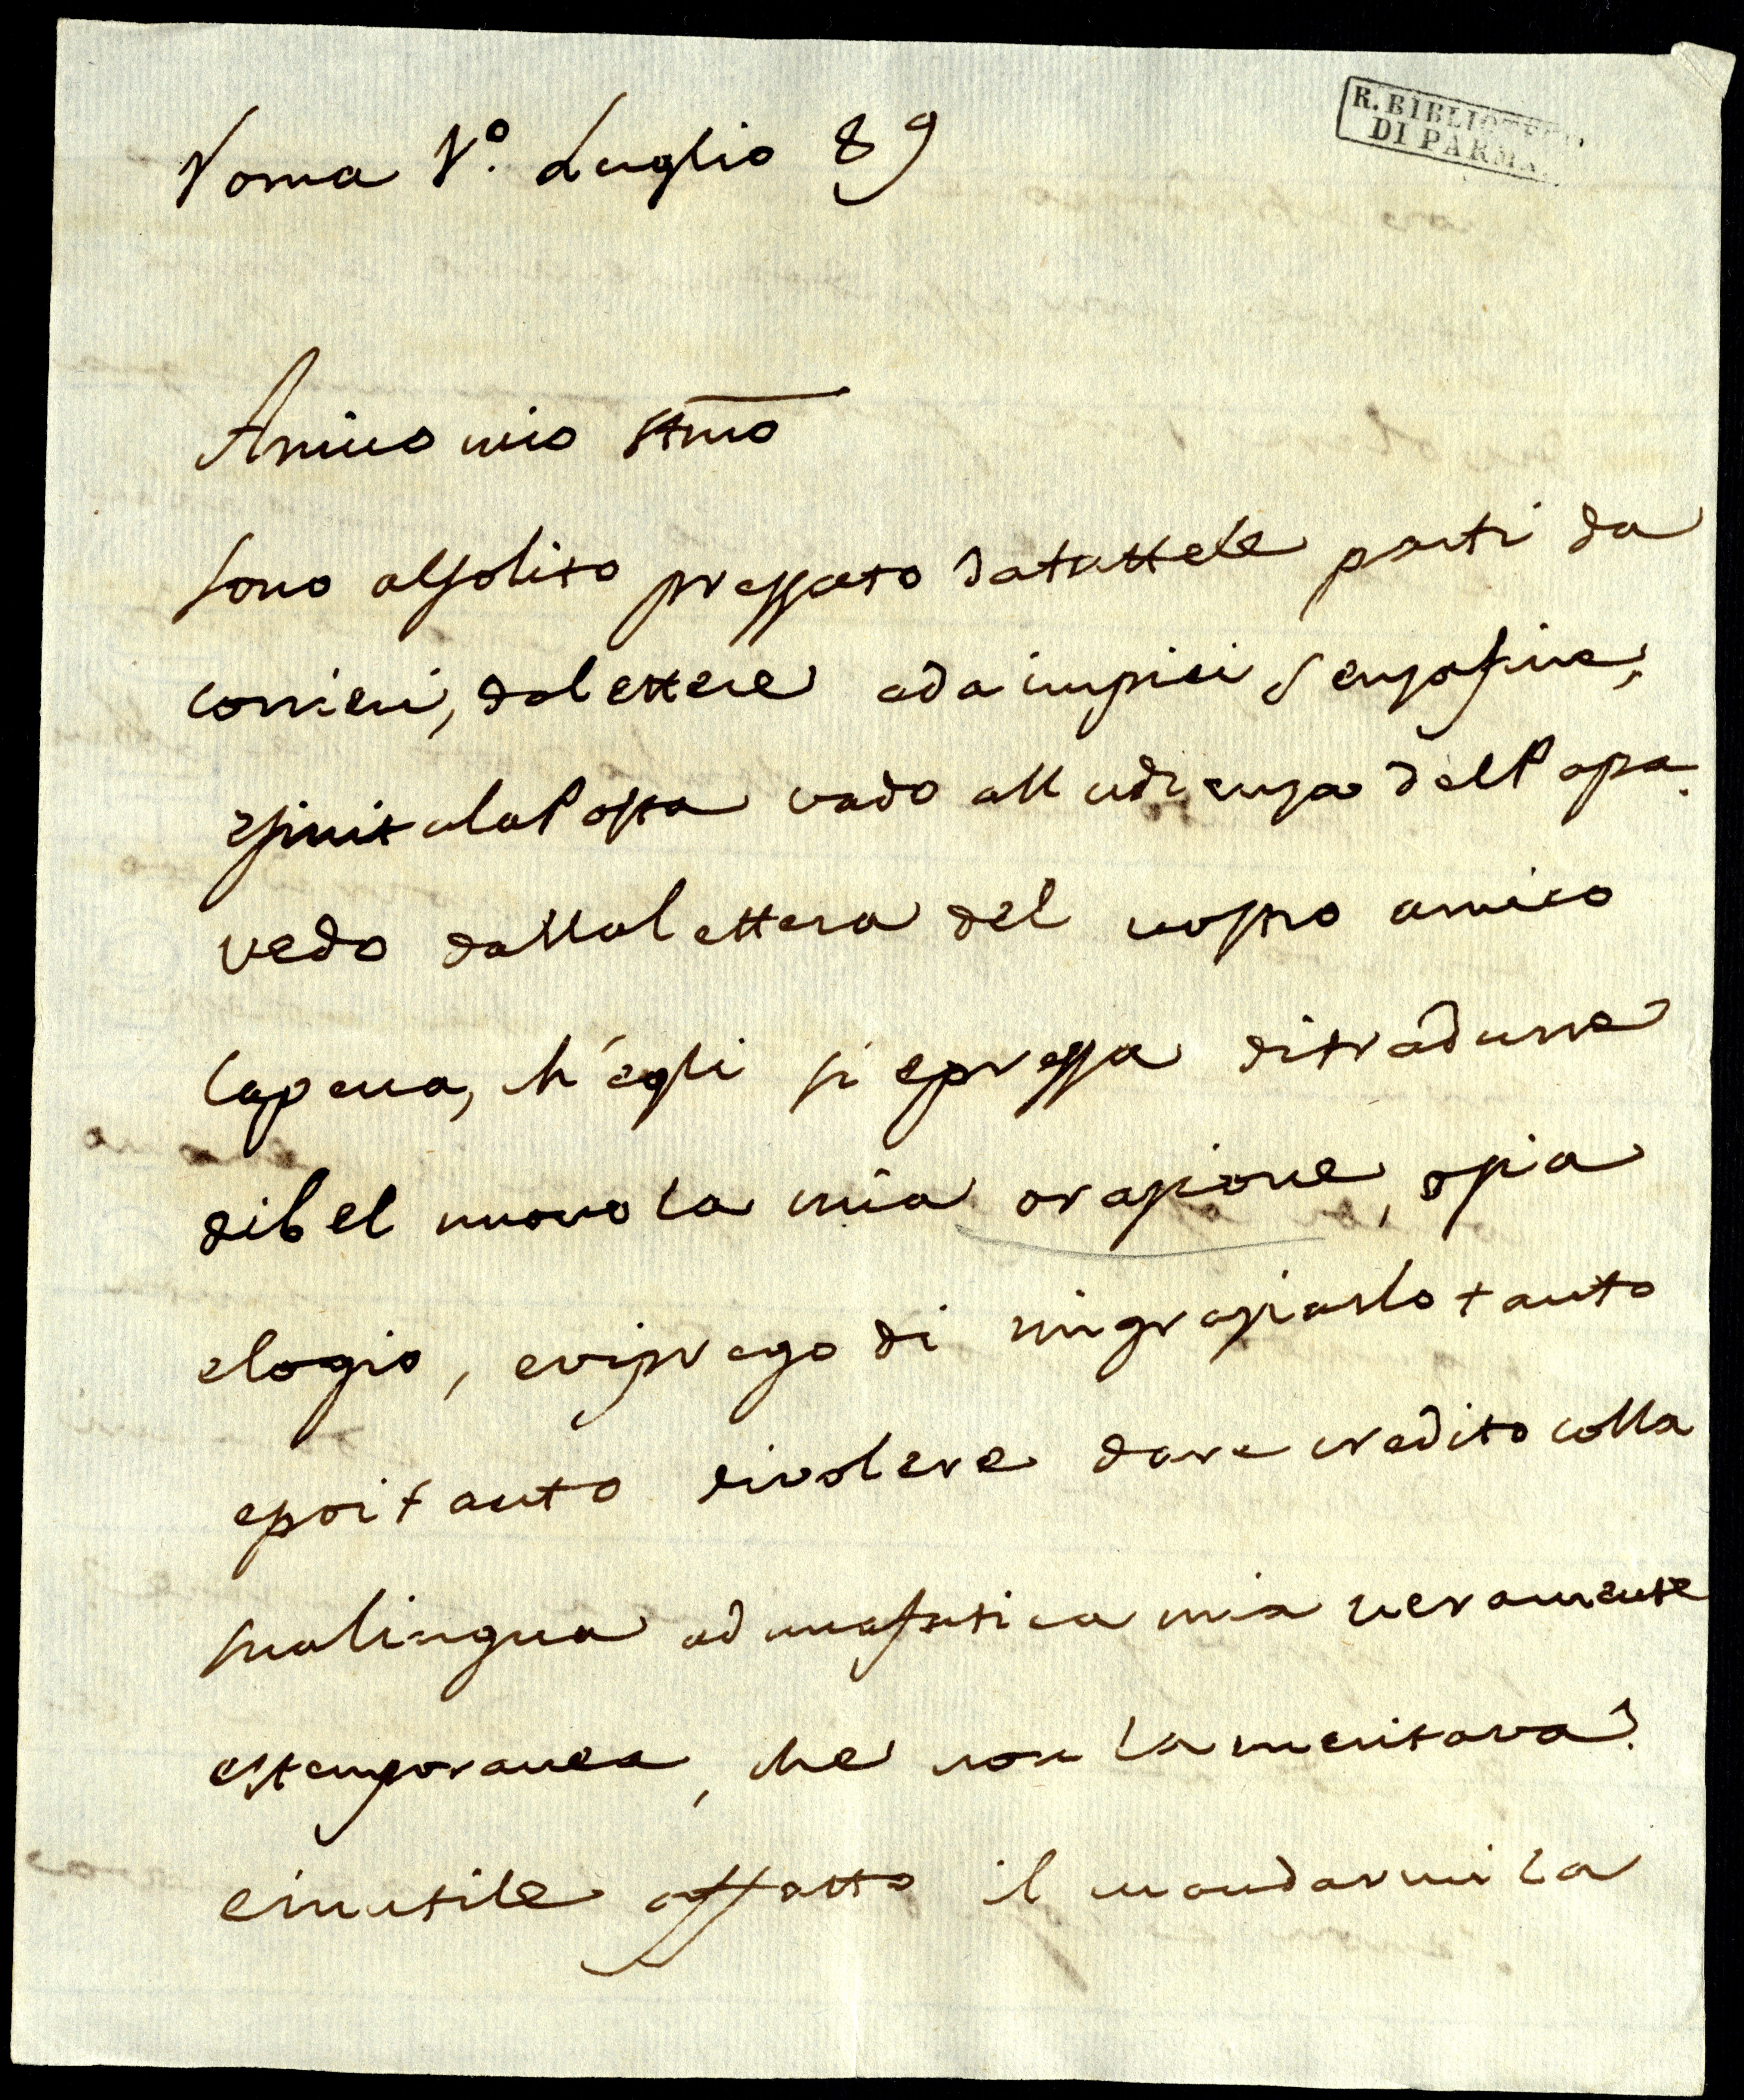 Roma 1º. Luglio 89
R. BIBLIOTECA
DI PARMA
Amico mio stmo
sono al solito pressato da tutte le parti da
corrieri, da lettere e da impici senza fine,
e finita la Posta vado all udienza del Papa.
vedo dalla lettera del vostro amico
Capena, ch'egli si è pressa di tradurre
di bel nuovo la mia orazione, o sia
elogio, e vi prego di ringraziarlo tanto
e poi tanto di volere dare credito colla
sua lingua ad una fatica mia veramente
estemporanea, che non la meritava.
è inutile affatto il mandarmi la